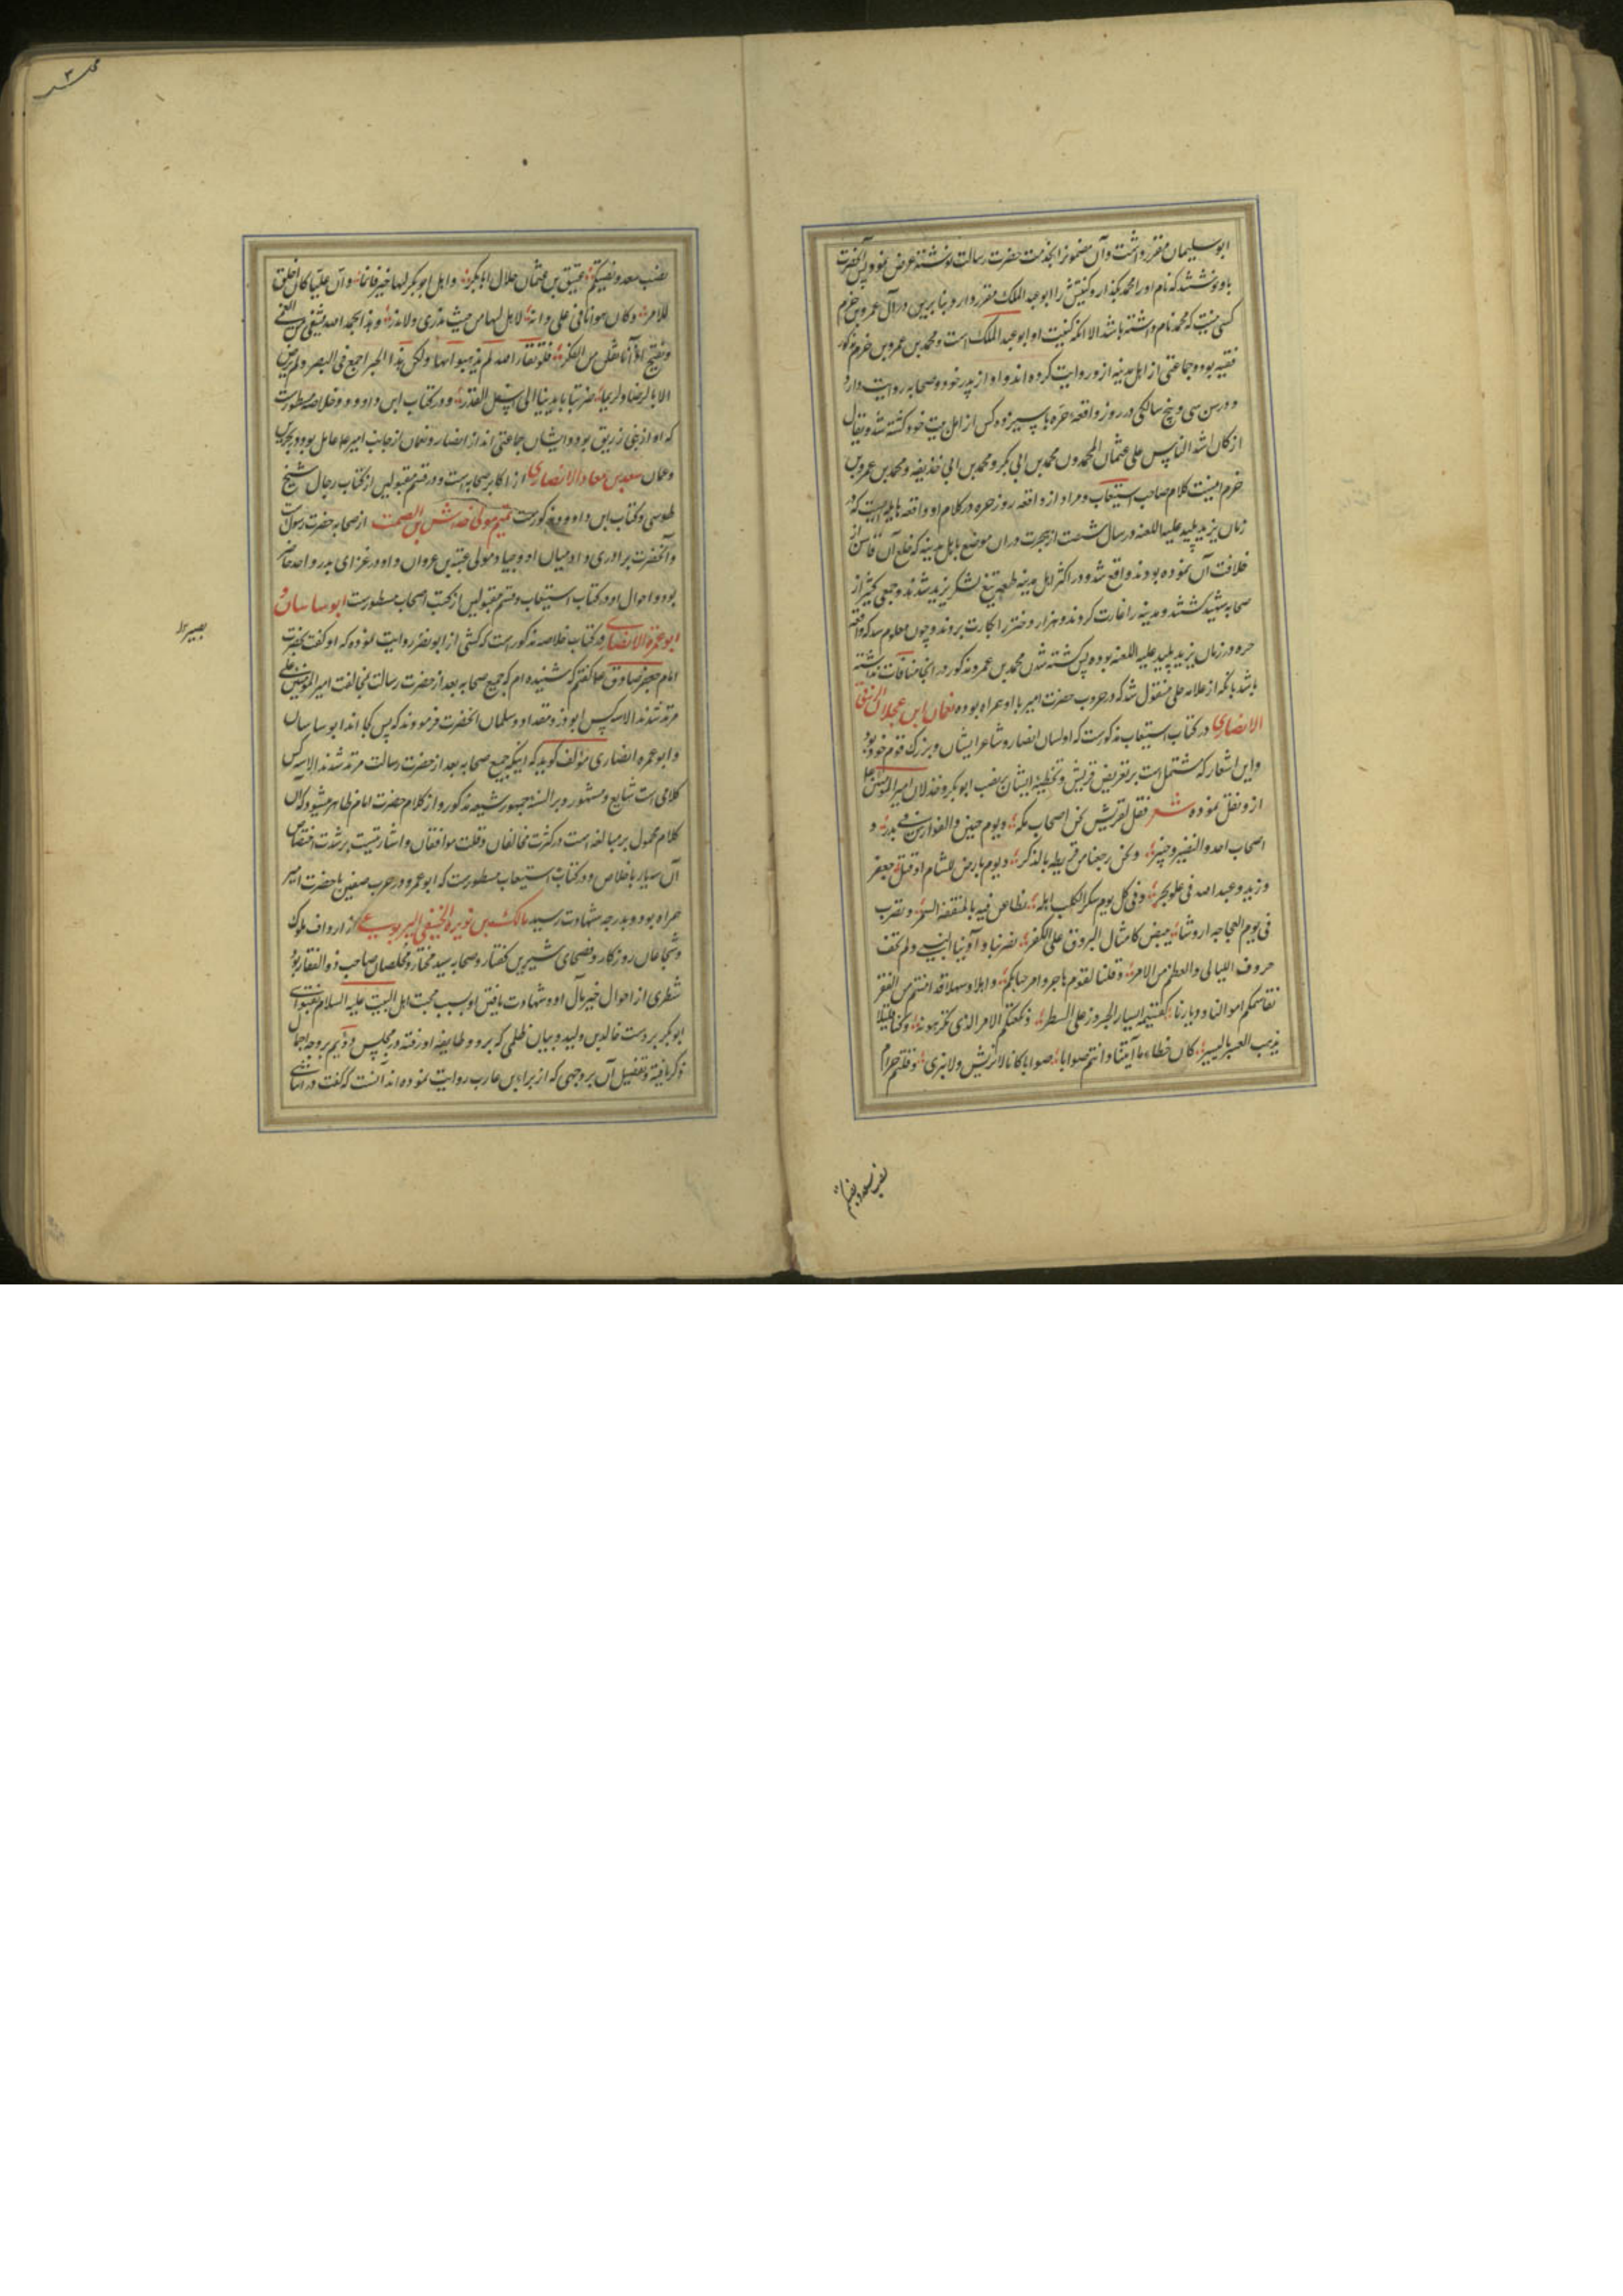 ابو سلیمان مقرر داشت و آن مضمونرا بخدمت حضرت رسالت نوشته عرض نمود پس آنحضرت
باو نوشتند که نام او را محمد بگذار و کنیتش را ابو عبد الملک مقرر دار و بنا برین در آل عمرو بن حزم
کسی نیست که محمد نام داشته باشد الا آنکه کنیت او ابو عبد الملک است و محمد بن عمرو بن حزم مذکور
فقیه بود و جماعتی از اهل مدینه ازو روایت کرده اند و او از پدر خود و صحابه روایت دارد
و در سن سی و پنج سالگی در روز واقعه حره با سیزده کس از اهل بیت خود کشته شد و یقال
انه کان اشد الناس علی عثمان المحمدون محمد بن ابی بکر و محمد بن ابی حذیفه و محمد بن عمرو بن
حزم اینست کلام صاحب استیعاب و مراد از واقعه روز حره در کلام او واقعه هایله ایست که در
زمان یزید پلید علیه اللعنه در سال شصت از هجرت در آن موضع باهل مدینه که خلع آن فاسق از
خلافت آن نموده بودند واقع شد و در اکثر اهل مدینه طعمه تیغ لشکر یزید شدند و جمعی کثیر از
صحابه شهید گشتند و مدینه را غارت کردند و هزار دختر را بکارت بردند و چون معلوم شد که واقعه
حره در زمان یزید پلید علیه اللعنه بوده پس کشته شدن محمد بن عمرو مذکور در آنجا منافات نداشته
باشد بآنکه از علامه حلی منقول شد که در حروب حضرت امیر با او همراه بوده نعمان ابن عجلان الزرقی
الانصاری در کتاب استیعاب مذکورست که او لسان انصار و شاعر ایشان و بزرگ قوم خود بود
و این اشعار که مشتمل است بر تعریض قریش و تخطیه ایشان بنصب ابو بکر و خذلان امیر المؤمنین
ازو نقل نموده شعر فقل لقریش نحن اصحاب مکه و یوم حنین والفوارس فی بدر و
اصحاب احد والنضیر و خیبر و نحن رجعنا من قریظه بالذکر و یوم بارض الشام اذ قتل جعفر
و زید و عبد الله فی علو یجر و فی کل یوم ینکر الکلب اهله نطاعن فیه بالمثقفه السمر و نضرب
فی یوم العجاجه اروسا ببیض کامثال البروق علی الکفر نصرنا و آوینا النبی و لم نخف
صروف اللیالی والعظیم من الامر و قلنا لقوم هاجروا مرحبا بکم و اهلا و سهلا قد امنتم من الفقر
نقاسمکم اموالنا و دیارنا کقسمة ایسار الجزور علی الشطر و نکفیکم الامر الذی تکرهونه و کنا اناسا
یذهب العسر بالیسر کان خطاء ما اتینا و انتم صوابا کانا لا نریش و لا نبری و قلتم حرام
نصب سعد و نصبکم
نصب سعد و نصبکم عتیق بن عثمان حلال ابا بکر و اهل ابو بکر لها خیر قائم و ان علیا کان اخلق
للامر و کان هوانا فی علی و انه لاهل لها من حیث یدری و لا یدری و هذا بحمد الله یشفی من العمی
و یفتح آذانا ثقلن من الوقر فلولا تقاء الله لم یذهبوا بها ولکن هذا الخیر اجمع فی الصبر و لم نرض
الا بالرضا
که او از بنی زریق بود و ایشان جماعتی اند از انصار و نعمان از جانب امیر عامل بود بر بحرین
و عمان سعد بن معاد الانصاری از اکابر صحابه است و در قسم مقبولین از کتاب رجال شیخ
طوسی و کتاب ابن داوود مذکورست تمیم مولی خداش بن الصمت از صحابه حضرت رسولست
و آنحضرت برادری داد میان او و جناد مولی عتبه بن غزوان و او در غزای بدر و احد حاضر
بود و احوال او در کتاب استیعاب و قسم مقبولین از کتب اصحاب مسطورست ابو ساسان و
ابو عمرة الانصاری در کتاب خلاصه مذکور است که کشی از ابو بصیر روایت نموده که او گفت بحضرت
امام جعفر صادق ع گفتم که شنیده ام که جمیع صحابه بعد از حضرت رسالت بمخالفت امیر المؤمنین علی
مرتد شدند الا سه کس ابوذر و مقداد و سلمان آنحضرت فرمودند که پس کجا اند ابو ساسان
و ابو عمره انصاری مؤلف گوید که اینکه جمیع صحابه بعد از حضرت رسالت مرتد شدند الا سه کس
کلامی است شایع و مشهور و بر السنه جمهور شیعه مذکور و از کلام حضرت امام ظاهر میشود که آن
کلام محمول بر مبالغه است در کثرت مخالفان و قلت موافقان و اشارتیست بر شدت اختصاص
آن سه یار باخلاص و در کتاب استیعاب مسطورست که ابو عمره در حرب صفین با حضرت امیر
همراه بود و بدرجه شهادت رسید مالک بن نویرة الحنفی الیربوعی از ارداف ملوک
و شجاعان روزگار و فصحای شیرین گفتار و صحابه سید مختار و مخلصان صاحب ذو الفقار بود
شطری از احوال خیر مآل او و شهادت یافتن او بسبب محبت اهل البیت علیه السلام بفتوای
ابو بکر بر دست خالد بن ولید و بیان ظلمی که برو و طایفه او رفته در مجلس دویم بر وجه اجمال
ذکر یافته و تفصیل آن بر وجهی که از براء بن عازب روایت نموده اند آنست که گفت در اثنای
بصیر